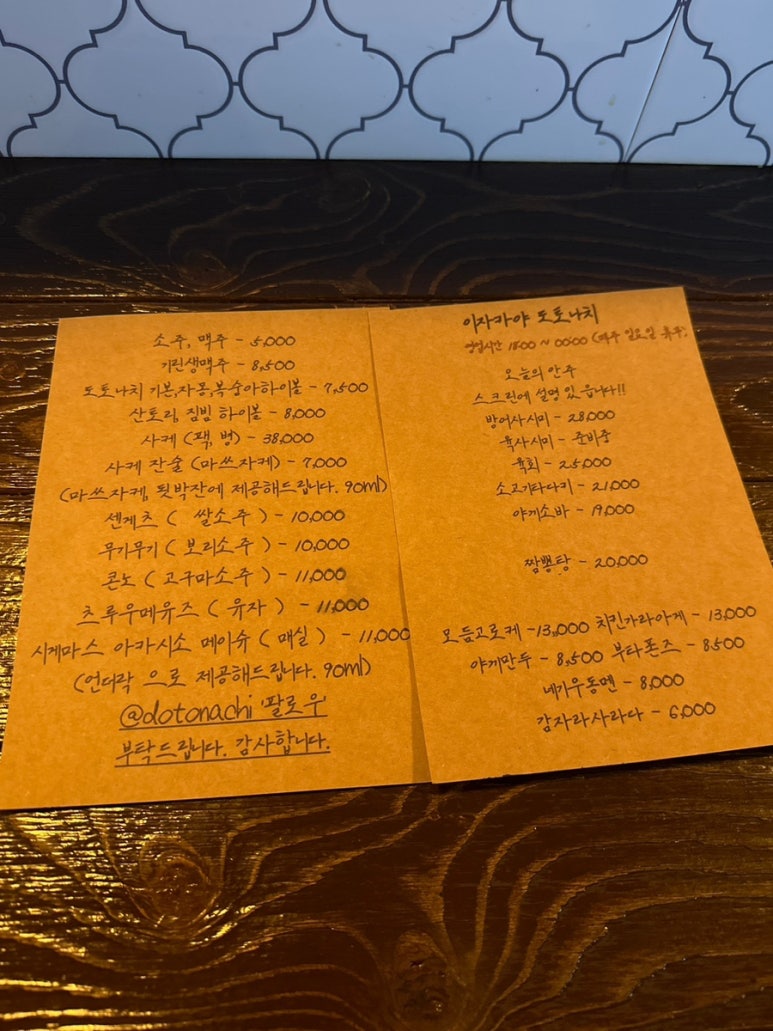 소주, 맥주 - 5,000
기린생맥주 - 8,500
도토나치 기본,자몽,복숭아하이볼 - 7,500
산토리, 짐빔 하이볼 - 8,000
사케 (팩, 병) - 38,000
사케 잔술 (마쓰자케) - 7,000
(마쓰자케, 됫박잔에 제공해드립니다. 90ml)
센케츠 ( 쌀소주 ) - 10,000
무기무기 ( 보리소주 ) - 10,000
콘노 ( 고구마소주 ) - 11,000
츠루우메유즈 ( 유자 ) - 11,000
시게마스 아카시소 메이슈 ( 매실 ) - 11,000
(언더락 으로 제공해드립니다. 90ml)
@dotonachi '팔로우'
부탁드립니다. 감사합니다.
이자카야 도토나치
영업시간 18:00 ~ 00:00 (매주 일요일 휴무)
오늘의 안주
스크린에 설명 있읍니다!!
방어사시미 - 28,000
육사시미 - 준비중
육회 - 25,000
소고기타다키 - 21,000
야끼소바 - 19,000
짬뽕탕 - 20,000
모듬고로케 - 13,000 치킨가라아게 - 13,000
야끼만두 - 8,500 부타폰즈 - 8,500
네기우동멘 - 8,000
감자라사라다 - 6,000